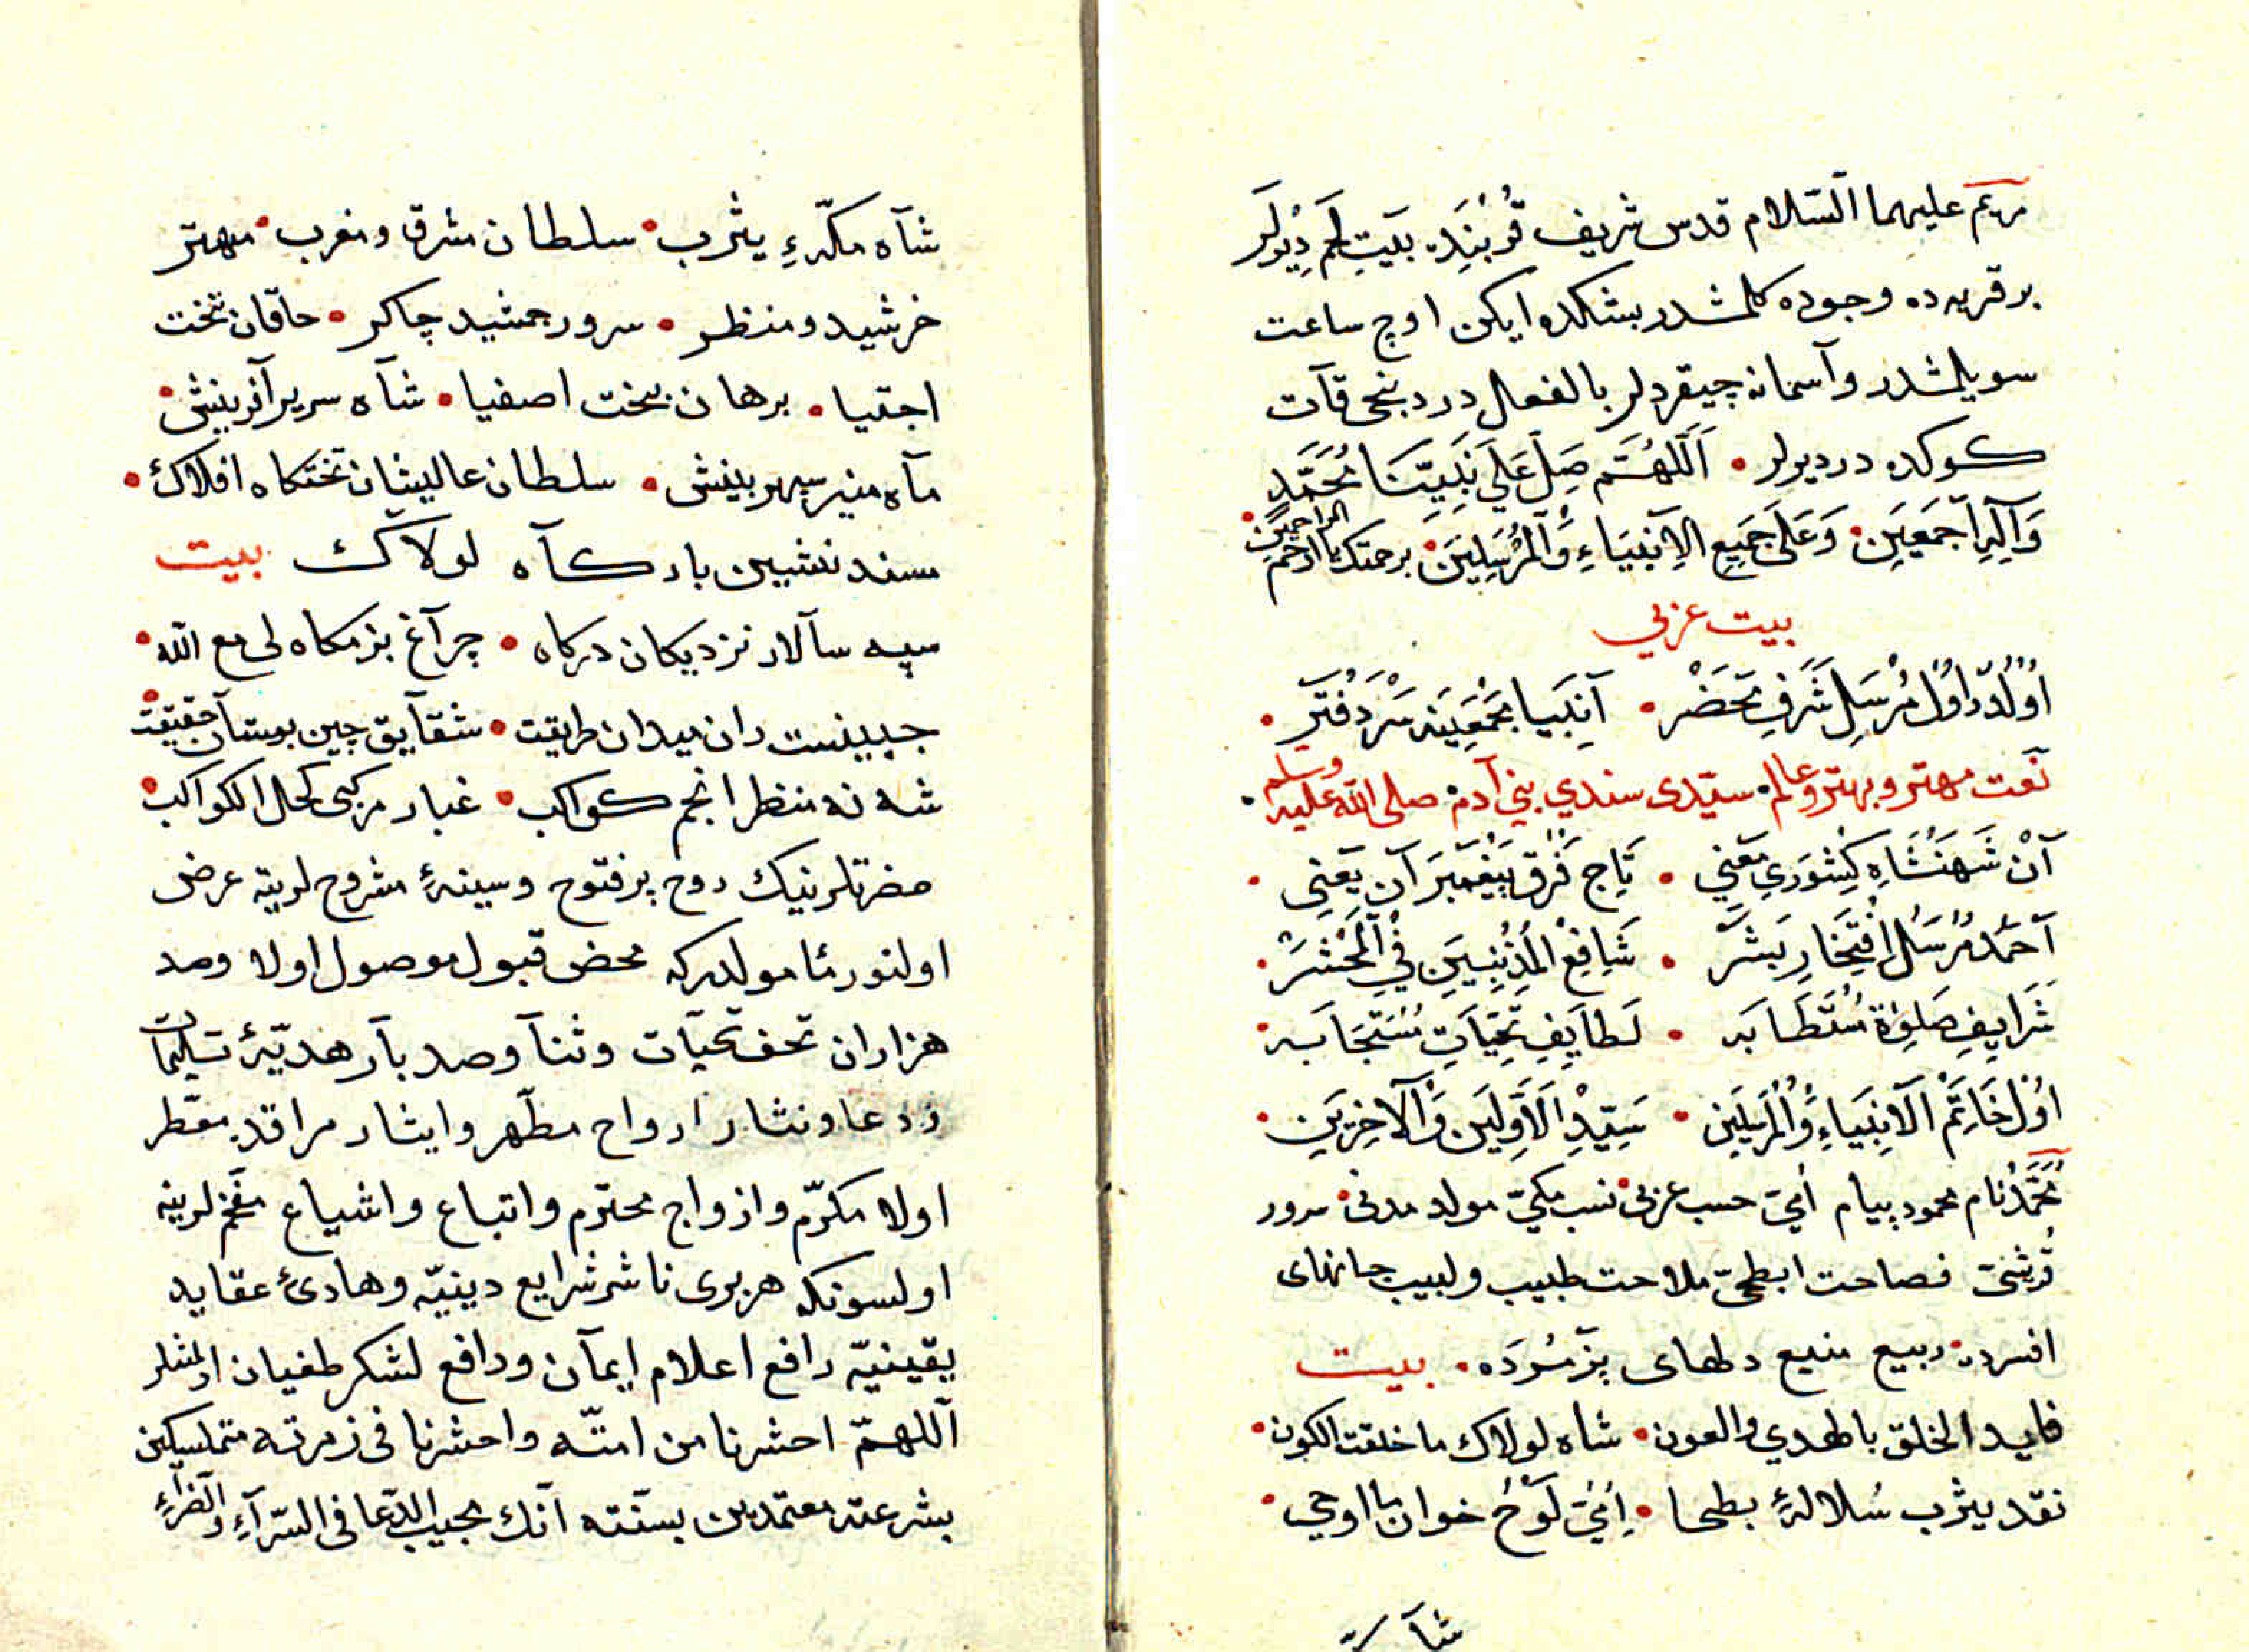 مريم عليهما السّلام قدس شريف قُربنده بَيتِ لَحم ديُولَر
بر قريه ده وجوده كلمشدر بشكده ايكن اوچ ساعت
سويلمشدر وآسمانه چيقرديلر بالفعال دردنجى قآت
كوكده در ديرلر • اَللّٰهُمَّ صَلِّ عَلَى نَبِيِّنَا مُحَمَّدٍ
وَآلِهِ اَجمَعَين • وَعَلَى جَمِيعِ الاَنبِيَاءِ وَالمُرسَلِينَ • برحمتك يا ارحم الراحمين •
بيت عربي
اوُلدُرّ اوُل مُرسَلِ شَرَفِ مَحضَر • اَنبيَا جَمعِينَه سَر دَفتَر •
نَعت مهتر وبهتر وعالم • سيّدى سندي بني آدم • صلى الله عليه وسلم •
آن شَهَنشَاهِ كِشوَرِي مَعنِي • تَاجِ فَرقِ پَيغَمبَرَآن يَعنِي •
اَحمَد مُرسَل افتِخَارِ بَشَر • شَافِعُ المُذنِبِينَ فِي المَحشَر •
شَرَايِفِ صَلوٰة مُستَطَابَه • لَطَايِفِ تَحِيَّاتِ مُستَجَابَه •
اوُل خَاتَمِ الاَنبِيَاءِ وَالمُرسَلِين • سَيِّدِ الاَوَّلِين وَالآخِرِين •
مُحَمَّد نام محمود پيام اُمّى حسب عربى نسب مكّىّ مولد مدنى • سرور
قُرَيشىّ فصاحت ابطحىّ ملاحت طبيب ولبيب جانهاى
افسرده • ربيع منيع دلهاى پژمُردَه • بيت
قايد الخلق بالهدي والعون • شاه لولاك ما خلقت الكون •
نقد يثرب سُلالهٔ بطحا • اُمّىِ لَوح خوان ما اوحي •
شاه
شآه مكّهءِ يثرب • سلطان مشرق ومغرب • مهتر
خرشيد ومنظر • سرور جمشيد چاكر • خاقان تخت
اجتبا • برهان بخت اصفيا • شآه سرير آفرينش •
مآه منير سپهر بينش • سلطان عاليشان تختكاه افلاك •
مسند نشين باركآه لولاكَ بيت
سپه سآلار نزديكان دركاه • چرآغ بزمكاه لى مع الله •
جبينست دان ميدان طريقت • شقآيق چين بوستآن حقيقت •
شه نه منظر انجم كواكب • غبار مركبى كحال الكواكب •
حضرتلرينيك روح پر فتوح وسينهٔ مشروح لرينه عرض
اولنور ... مولدركه محض قبول موصول اولا وصد
هزاران تحف تحيآت وثنآ وصد بآر هديّهٔ تسليمات
ودعا ونثار ارواح مطّهر وايثار مراقد معّطر
اولاد مكرّم وازواج محترم واتباع واشياع مفخّم لرينه
اولسونكه هر برى ناشر شرايع دينيّه وهادىٔ عقايد
يقينيّه رافع اعلام ايمآن ودافع لشكر طغيان اولمشلر
اللهمّ احشرنا من امتّه واحشرنا فى زمرته متمسكين
بشرعته معتمدين بسنّته انّك مجيب الدّعا فى السّرآءِ والضرّاءِ